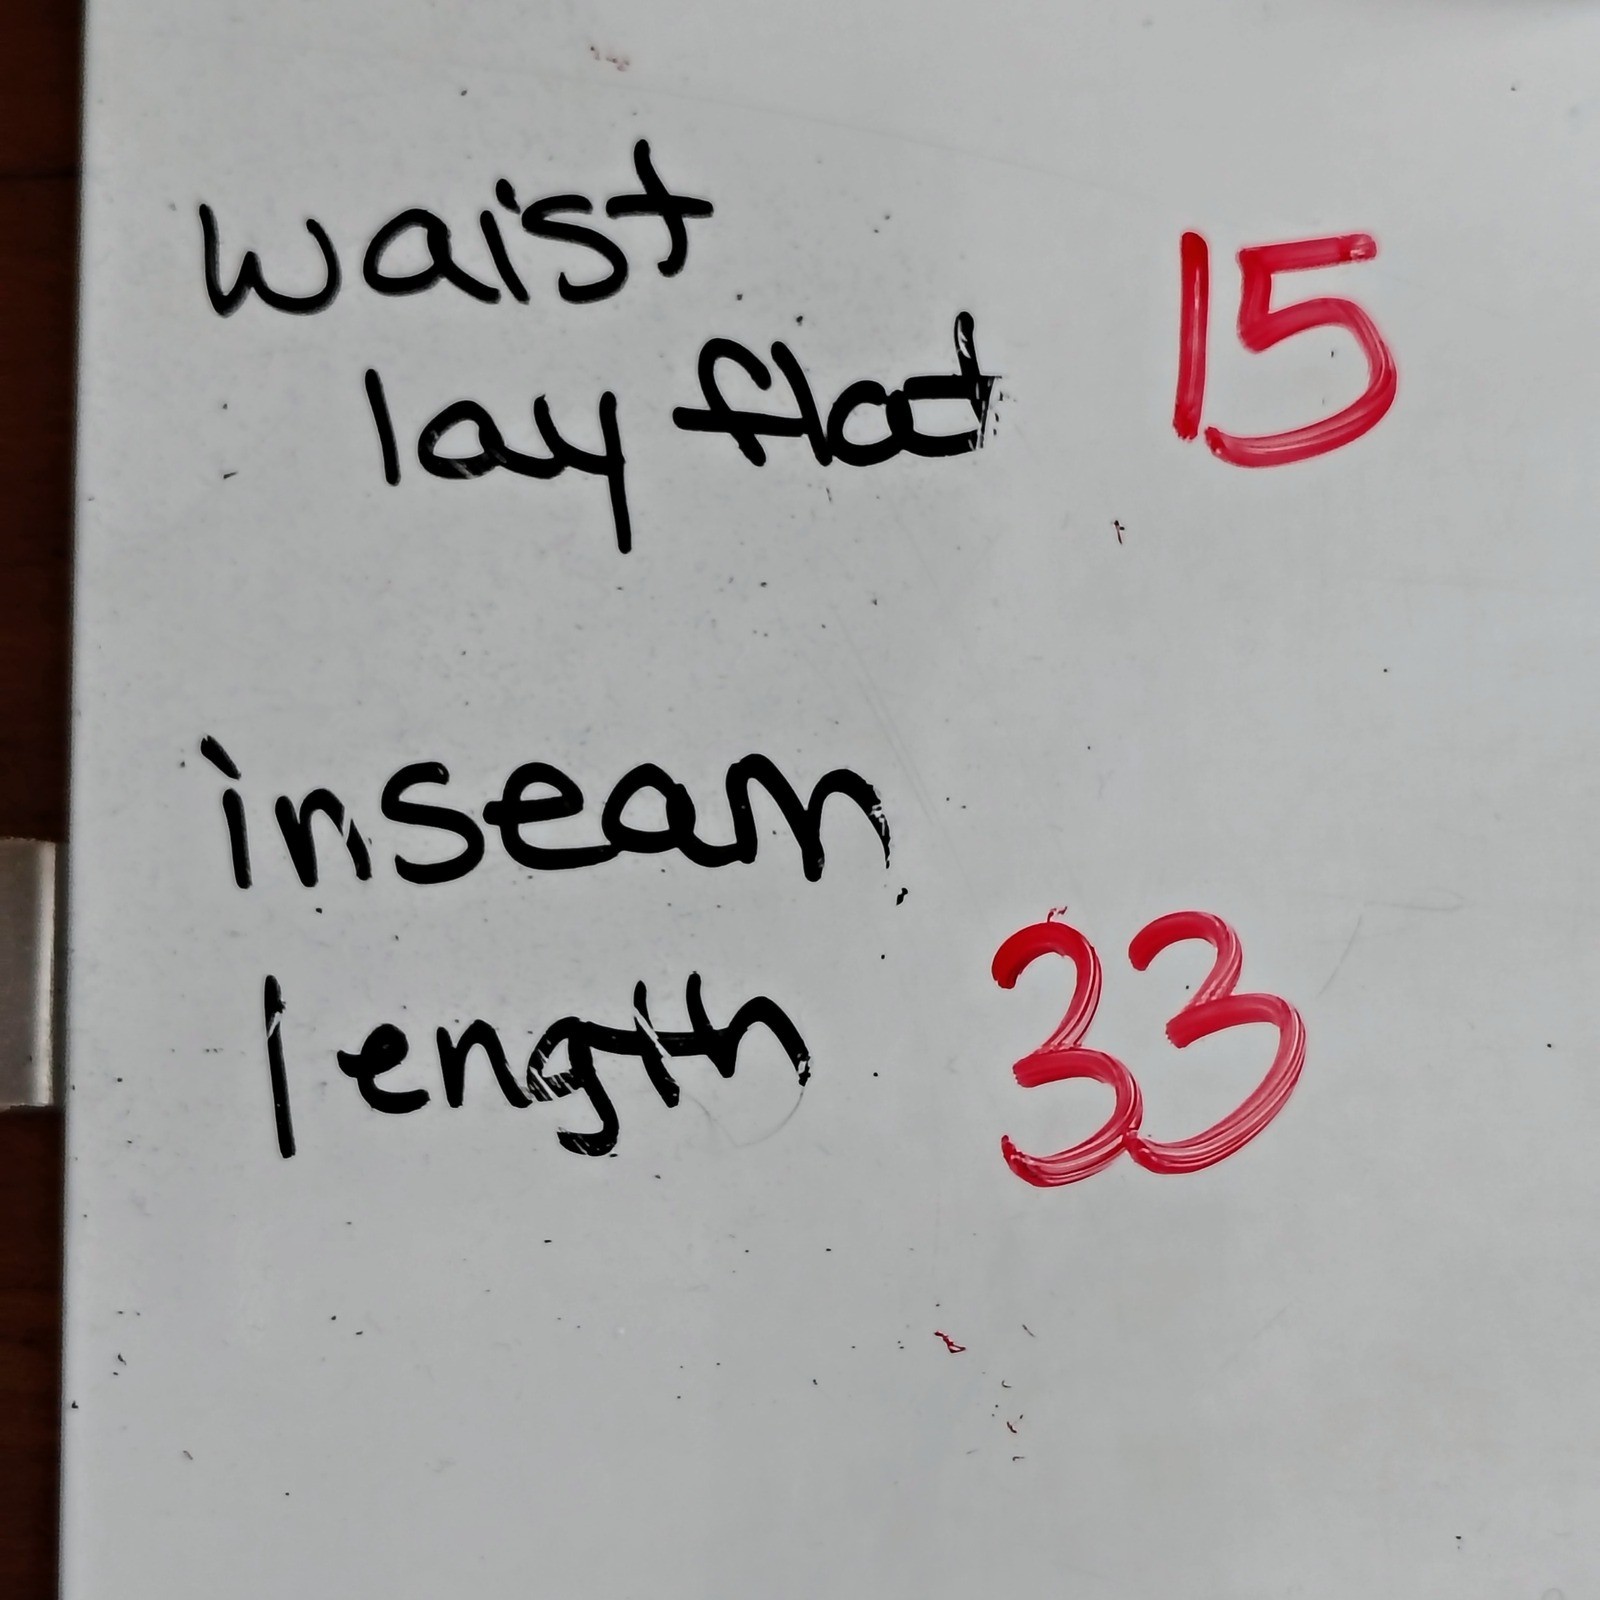 waist
lay flat 15
inseam
length 33